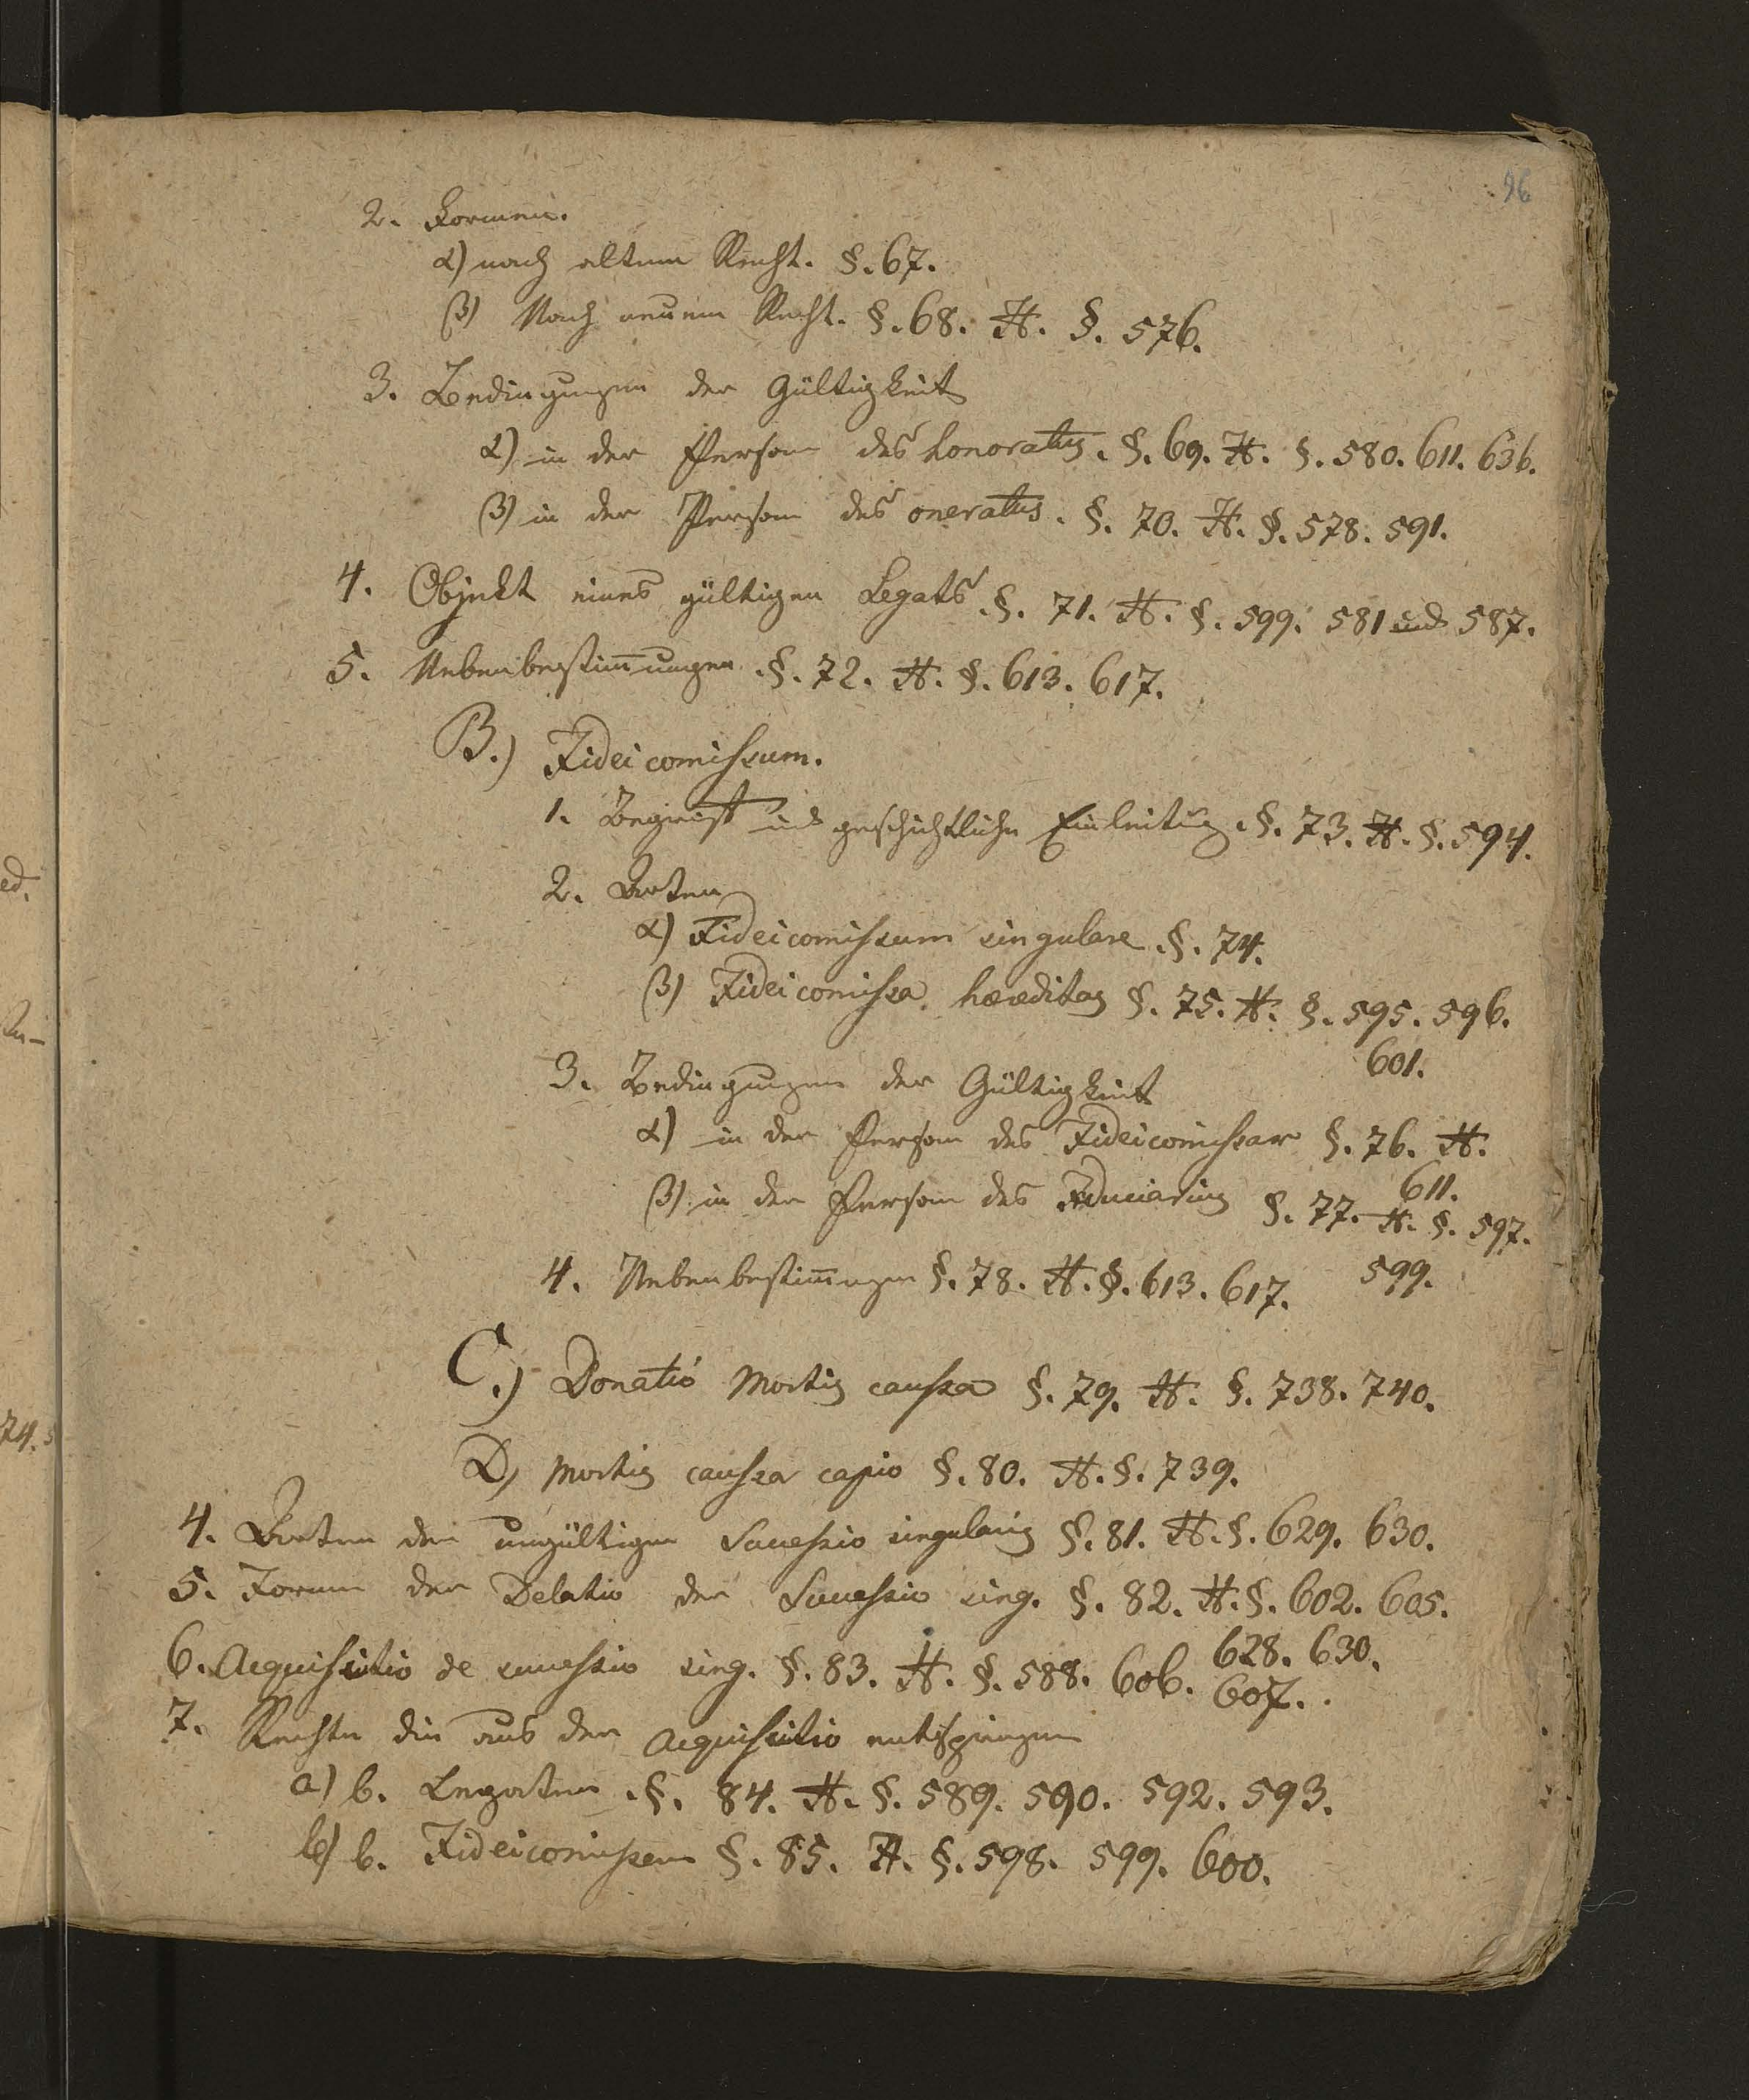 96
2. Formen.
α) nach altem Recht. §. 67.
β) Nach neuem Recht. §. 68. H. §. 576.
3. Bedingungen der Gültigkeit
α) in der Person des honoratus. §. 69. H. §. 580. 611. 636.
β) in der Person des oneratus. §. 70. H. §. 578. 591.
4. Objekt eines gültigen Legats. §. 71. H. §. 599. 581 und 587.
5. Nebenbestim̅ungen §. 72. H. §. 613. 617.
B.) Fideicomissum.
1. Begriff und geschichtliche Einleitung. §. 73. H. §. 594.
2. Arten
α) Fideicomissum singulare §. 74.
β) Fideicomissa hereditas §. 75. H. §. 595. 596.
601.
3. Bedingungen der Gültigkeit
α) in der Person des Fideicomissar §. 76. H.
611.
β) in der Person des Fiduciarius §. 77. H. §. 597.
599.
4. Nebenbestim̅ungen §. 78. H. §. 613. 617.
C.) Donatio Mortis caussa §. 79. H. §. 738. 740.
D) Mortis caussa capio §. 80. H. §. 739.
4. Arten der ungültigen Successio singularis §. 81. H. §. 629. 630.
5. Formen der Delatio der Successio sing. §. 82. H. §. 602. 605.
628. 630.
6. Acquisitio de successio sing. §. 83. H. §. 588. 606. 607.
7. Rechte die aus der Acquisitio entspringen
a) b. Legaten §. 84. H. §. 589. 590. 592. 593.
b) b. Fideicomissen §. 85. H. §. 598. 599. 600.